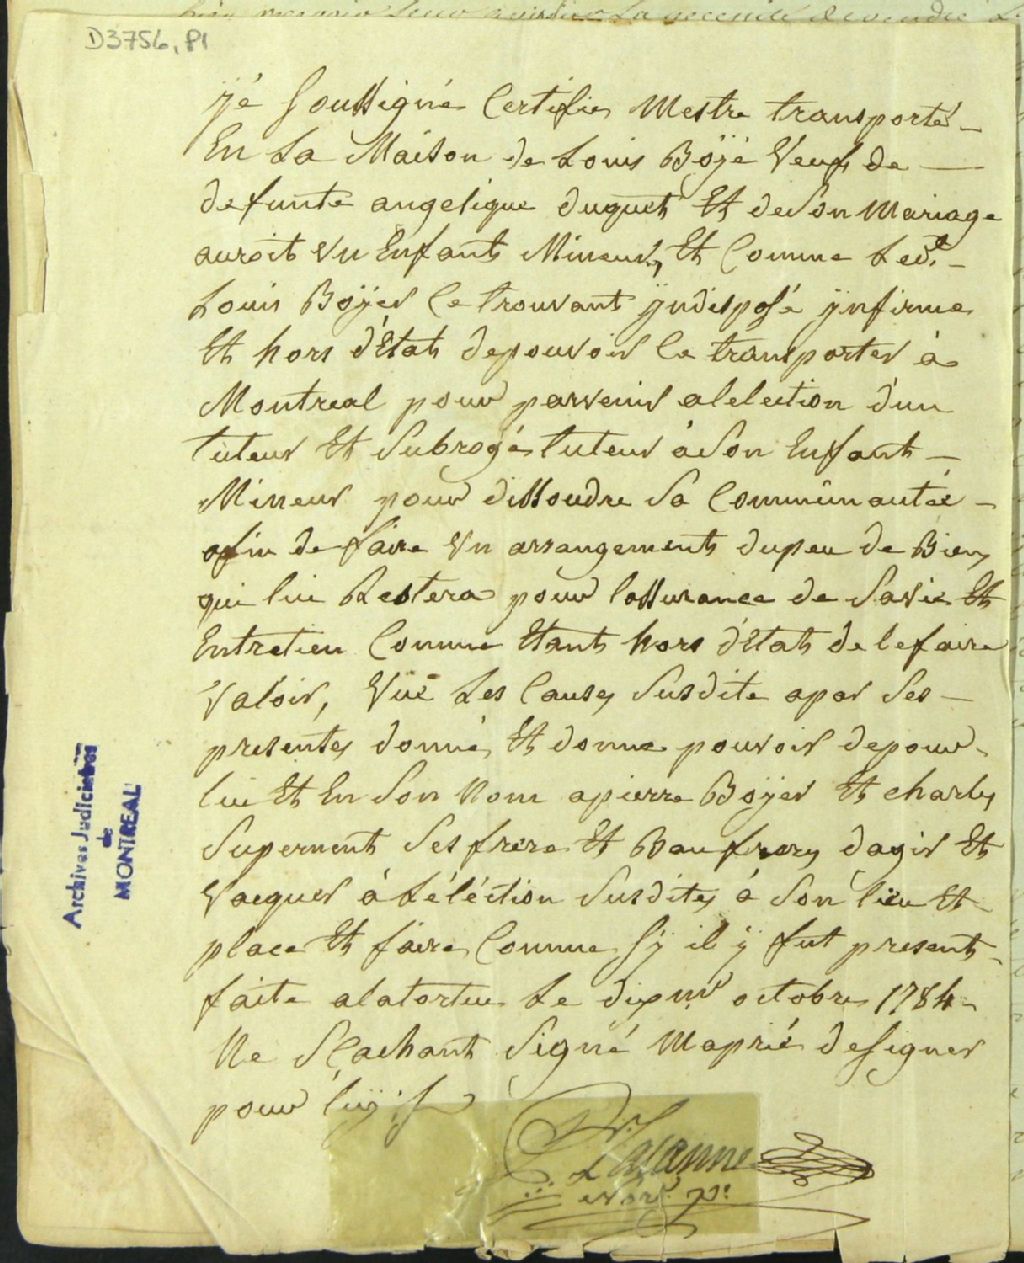 D3756, P1
Jé Soussigné Certifies Mestre transporté
En La Maison de Louis Boÿé Veuf de
defunte angelique duguet Et de Son Mariage
auroit Un Enfant Mineur, Et Comme Ledt
Louis Boÿer Ce trouvant ÿndisposé ÿnfirme
Et hors d'Etat depouvoir Ce transporter à
Montreal pour parvenir alelection d'un
tuteur Et Subrogé tuteur à Son Enfant
Mineur pour dissoudre Sa Communautée
afin de faire Un arrangement dupeu de Biens
qui lui Restera pour lassurance de Savie Et
Entretien Comme Etant hors d'Etat de lefaire
Valoir, Vüe Les Causes Susdite a par Ses
presentes donné, Et donne pouvoir depour
lui Et En Son Nom apierre Boÿer Et charles
Supernent Ses frere Et Beaufrere, dagir Et
Vacquer à Léléction Susdites à Son lieu Et
place Et faire Comme Sÿ il ÿ fut present
faite alatortue Le octobre 1784
Ne Sçachant Signé Maprié deSigner
pour luÿ
Lalanne
Notr. P.
Archives Judiciaires
de
MONTREAL